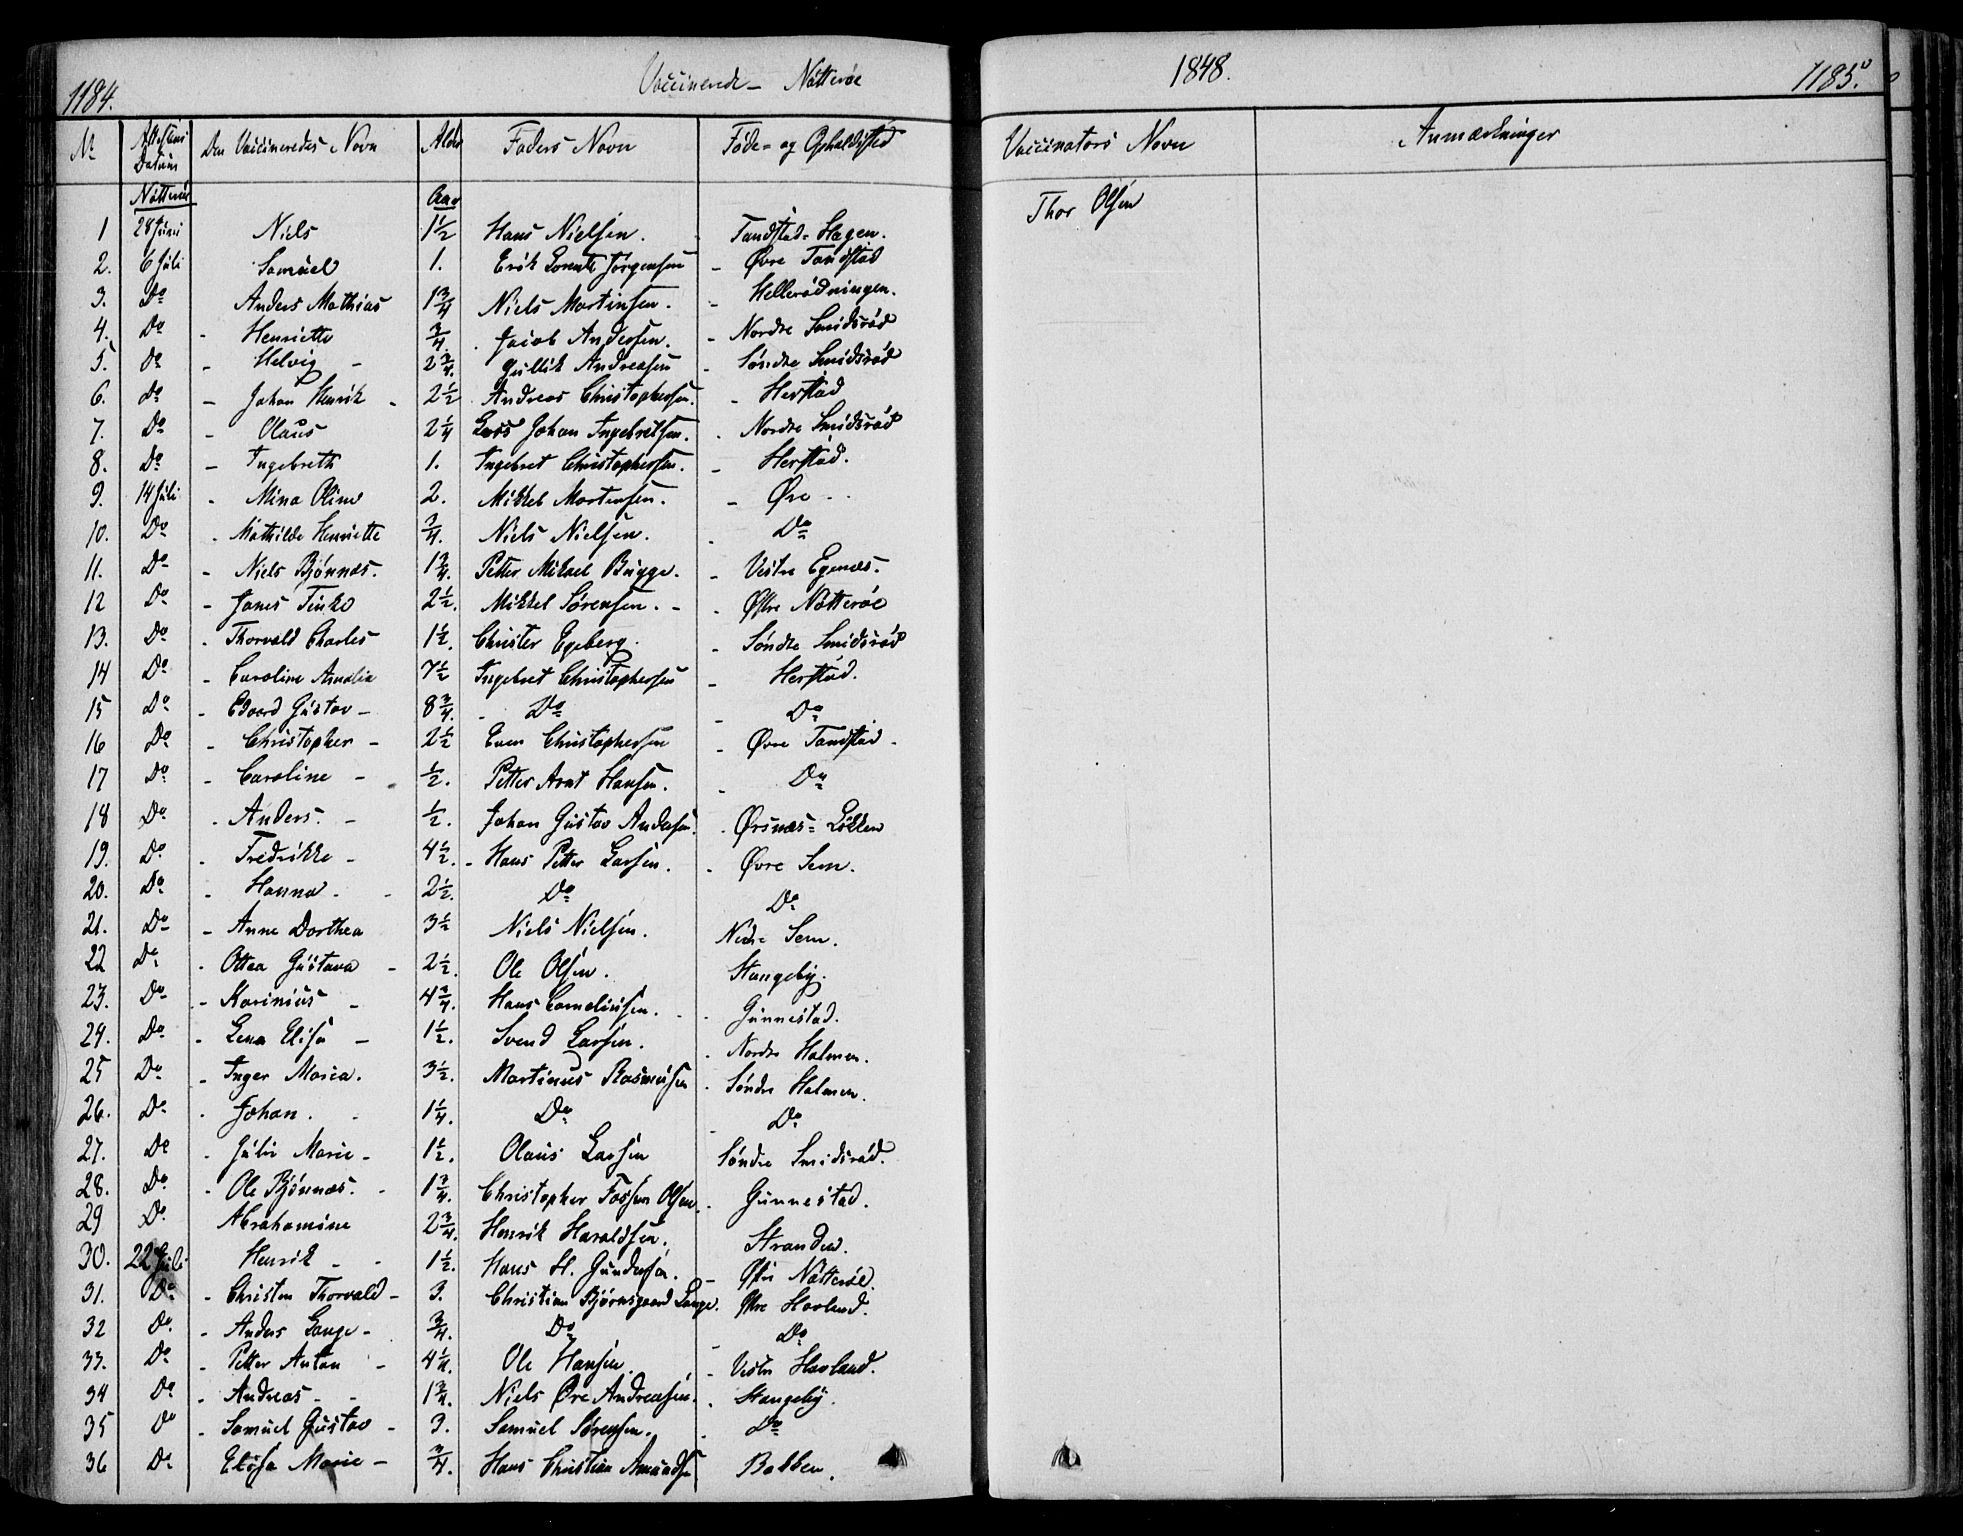 1184. Vaccinerede - Nötteröe 1848. 1185.
No Attestens Datum Den Vaccineredes Navn Alder Faders Navn Føde- og Opholdsted Vaccinators Navn Anmærkninger
Nötteröe Aar Thor Olsen
1 28 Juni Niels 1 1/2 Hans Nielsen. Tandstad-Hagen.
2. 6 Juli Samuel 1. Erik Lorentz Jörgensen - Øvre Tandstad
3. Do Anders Mathias 1 3/4 Niels Martinsen. - Hellerödningen.
4. Do - Henriette 3/4. Jacob Andersen. - Nordre Smidsröd
5. Do - Helvig - 2 3/4. Gullik Andreasen - Söndre Smidsröd
6. Do - Johan Henrik - 2 1/2 Andreas Christophersen. - Herstad
7. Do - Olaus 2 1/4 Lars Johan Ingebretsen. - Nordre Smidsröd
8. Do - Ingebreth 1. Ingebret Christophersen. - Herstad.
9. 14 Juli - Mina Oline 2. Mikkel Mortensen. - Øre - -
10. Do - Mathilde Henriette 3/4. Niels Nielsen. - Do
11. Do - Niels Bjönnæs. 1 3/4. Petter Mikael Bugge. - Vestre Egenæs.
12 Do - Janes Tinko 2 1/2. Mikkel Sörensen. - - Østre Nötteröe
13. Do - Thorvald Charles 1 1/2. Christer Egeberg. - Söndre Smidsröd
14 Do - Caroline Amalia 7 1/2 Ingebret Christophersen - Herstad.
15 Do - Edvard Gustav - 8 3/4. - Do - Do
16 Do - Christopher - 2 1/2 Even Christophersen - Øvre Tandstad -
17 Do - Caroline - 1/2. Petter Arnt Hansen. - Do
18 Do - Anders. - 1/2. Johan Gustav Andersen. - Örsnæs-Lökken
19. Do - Fredrikke - 4 1/2. - Hans Petter Larsen. - Øvre Sem.
20. Do - Hanna - - 2 1/2. Do Do
21. Do - Anne Dorthea 3 1/2 Niels Nielsen. Nedre Sem.
22 Do - Ottea Gustava - 2 1/2. Ole Olsen. Stangeby.
23. Do - Karinius - 4 3/4. Hans Corneliusen. - - Gunnestad.
24. Do - Lena Elisa - 1 1/2. Svend Larsen. - Nordre Holmen.
25 Do - Inger Maria. 3 1/2. Martinus Rasmusen - Söndre Holmen.
26. Do - Johan. - 1 1/4. Do - Do
27. Do - Julie Marie - 1 1/2. Olaus Larsen Söndre Smidsröd.
28. Do - Ole Bjönnæs. - 1 3/4. Christopher Fossen Olsen. Gunnestad.
29 Do Abrahamine 2 3/4. Henrik Haraldsen. Stranden.
30. 22 Juli Henrik - - 1 1/2. Hans H. Gundersen. - Østre Nötteröe.
31. Do - Christen Thorvald - 3. Christian Bjørnsgaard Lange. Østre Havland.
32 Do. - Anders Lange - 3/4. Do - Do
33. Do - Petter Anton - 4 1/4. Ole Hansen. - Vestre Havland.
34 Do - Andreas - - 1 3/4. Niels Øre Andreasen. - Stangeby.
35 Do - Samuel Gustav - 3. Samuel Sörensen. - Do
36 Do - Elisa Marie - 3/4. Hans Christian Amundsen Bakken.